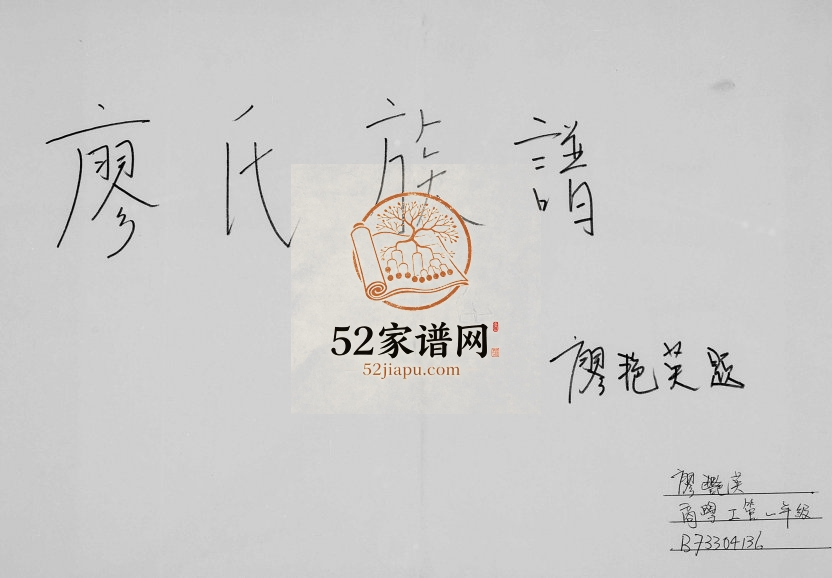 廖氏族譜
52家谱网
52jiapu.com
廖艳英题
廖艷英
商學工管一年級
B73304136